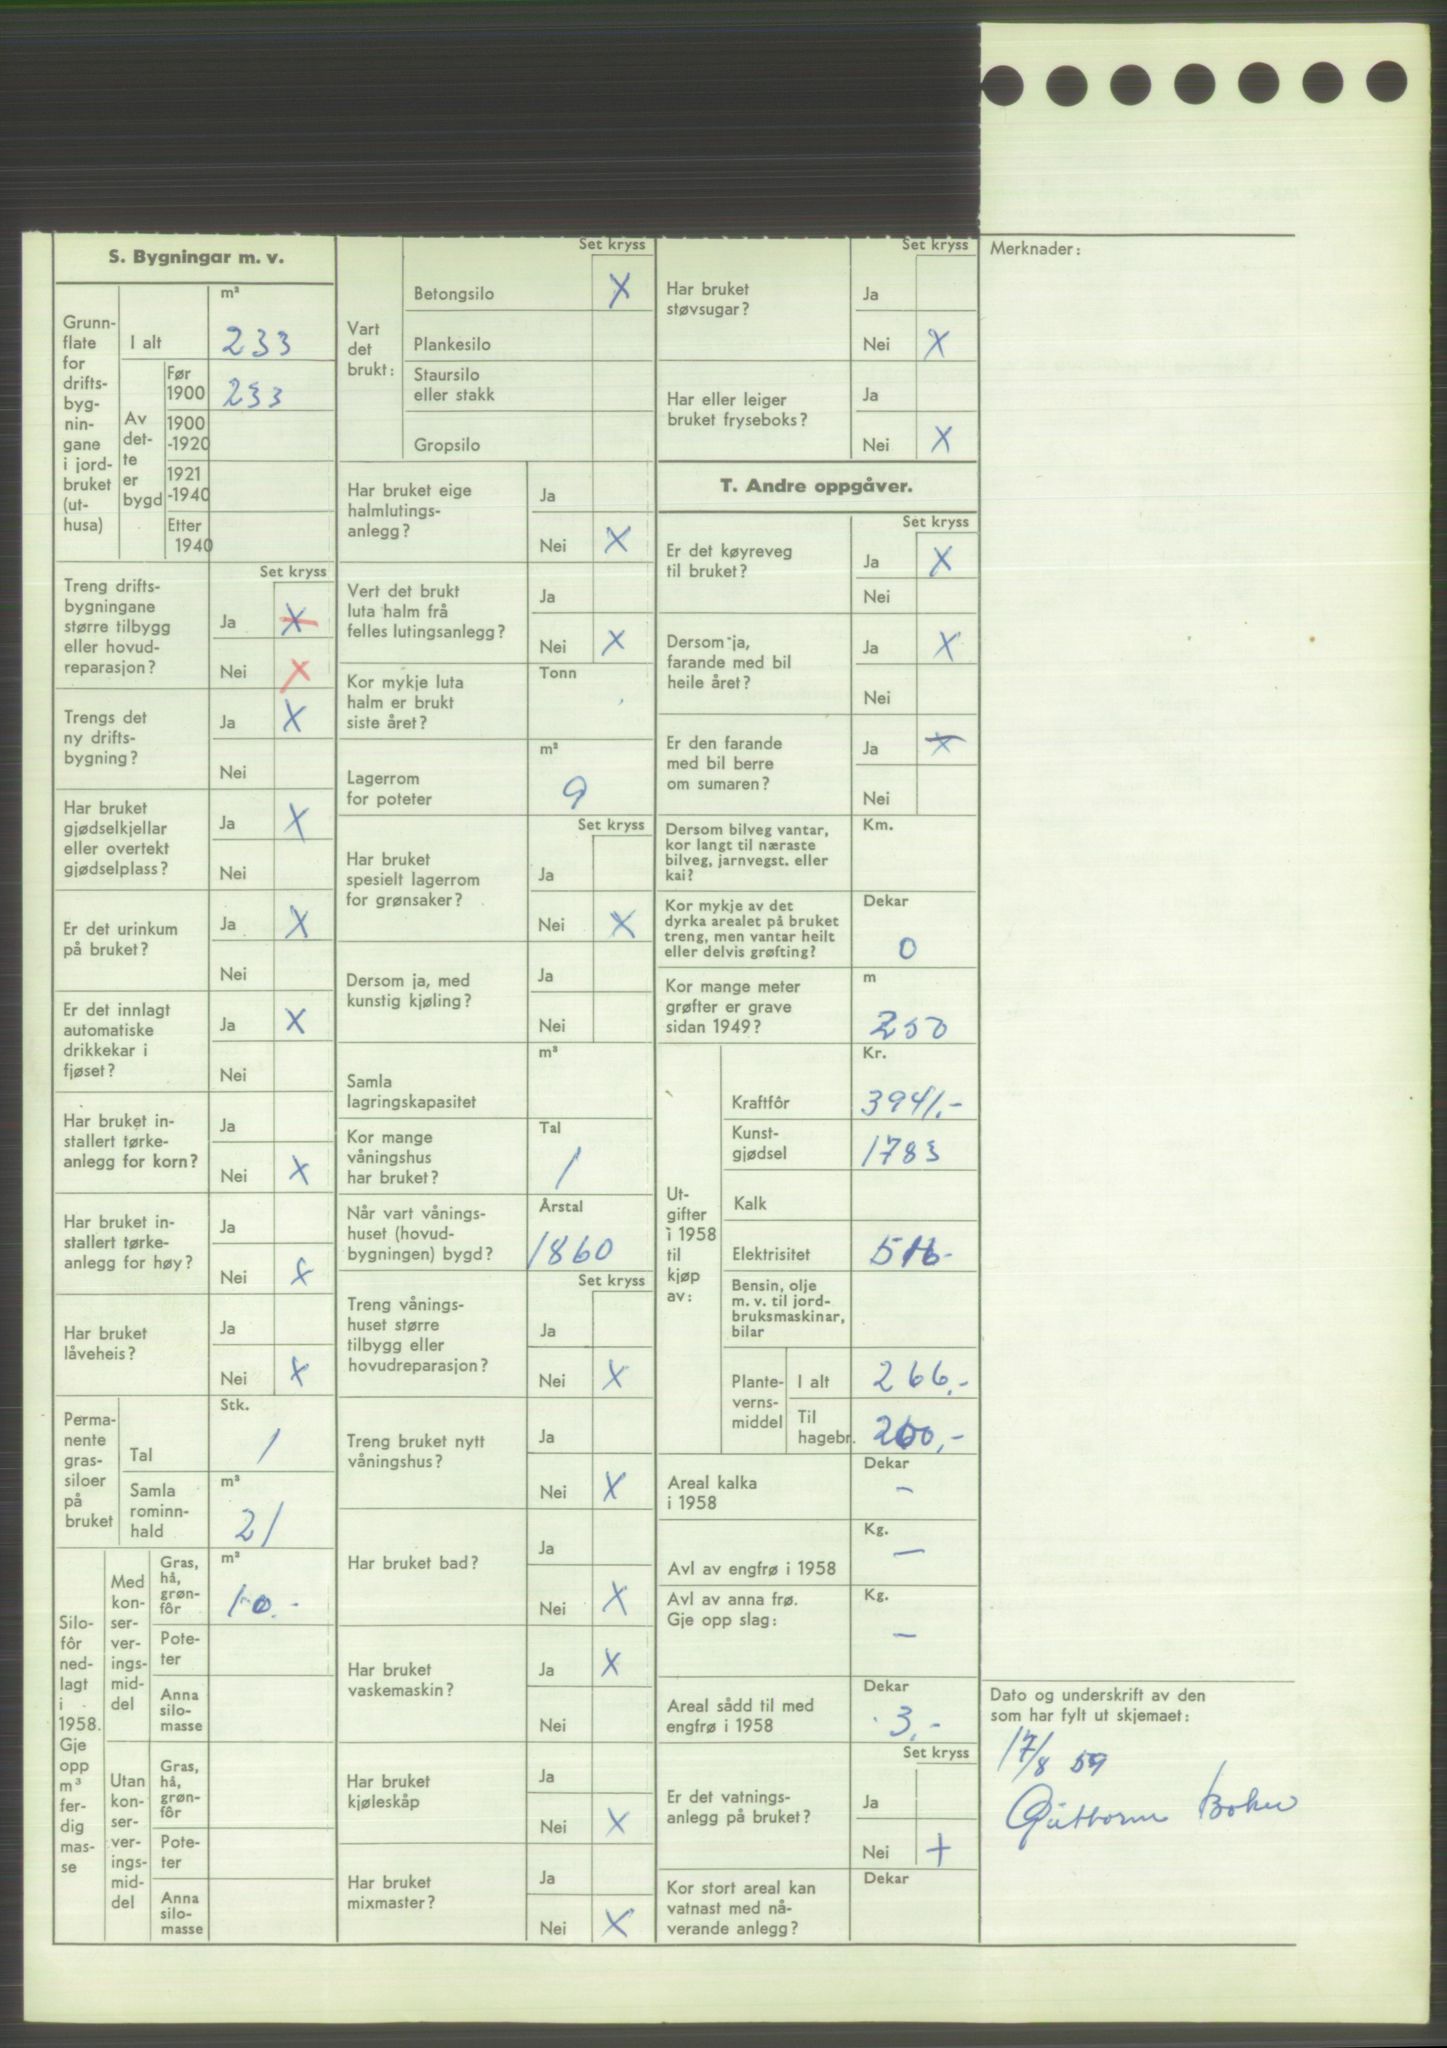 S. Bygningar m. v.
Grunn-
flate
for
drifts-
byg-
nin-
gane
i jord-
bruket
(ut-
husa)
m²
I alt 233
Av
det-
te
er
bygd
Før
1900 233
1900
-1920
1921
-1940
Etter
1940
Set kryss
Treng drifts-
bygningane
større tilbygg
eller hovud-
reparasjon?
Ja X
Nei X
Trengs det
ny drifts-
bygning?
Ja X
Nei
Har bruket
gjødselkjellar
eller overtekt
gjødselplass?
Ja X
Nei
Er det urinkum
på bruket?
Ja X
Nei
Er det innlagt
automatiske
drikkekar i
fjøset?
Ja X
Nei
Har bruket in-
stallert tørke-
anlegg for korn?
Ja
Nei X
Har bruket in-
stallert tørke-
anlegg for høy?
Ja
Nei X
Har bruket
låveheis?
Ja
Nei X
Perma-
nente
gras-
siloer
på
bruket
Stk.
Tal 1
m³
Samla
rominn-
hald
21
Silo-
fôr
ned-
lagt
i
1958.
Gje
opp
m³
fer-
dig
mas-
se
Med
kon-
ser-
ver-
ings-
mid-
del
Gras,
hå,
grøn-
fôr
m³
10.-
Pote-
ter
Anna
silo-
masse
Utan
kon-
ser-
ver-
ings-
mid-
del
Gras,
hå,
grøn-
fôr
Pote-
ter
Anna
silo-
masse
Vart
det
brukt:
Set kryss
Betongsilo X
Plankesilo
Staursilo
eller stakk
Gropsilo
Har bruket eige
halmlutings-
anlegg?
Ja
Nei X
Vert det brukt
luta halm frå
felles lutingsanlegg?
Ja
Nei X
Kor mykje luta
halm er brukt
siste året?
Tonn
Lagerrom
for poteter
m³
9
Set kryss
Har bruket
spesielt lagerrom
for grønsaker?
Ja
Nei X
Dersom ja, med
kunstig kjøling?
Ja
Nei
Samla
lagringskapasitet
m³
Kor mange
våningshus
har bruket?
Tal
1
Når vart vånings-
huset (hovud-
bygningen) bygd?
Årstal
1860
Set kryss
Treng vånings-
huset større
tilbygg eller
hovudreparasjon?
Ja
Nei X
Treng bruket nytt
våningshus?
Ja
Nei X
Har bruket bad?
Ja
Nei X
Har bruket
vaskemaskin?
Ja X
Nei
Har bruket
kjøleskåp
Ja
Nei X
Har bruket
mixmaster?
Ja
Nei X
Set kryss
Har bruket
støvsugar?
Ja
Nei X
Har eller leiger
bruket fryseboks?
Ja
Nei X
T. Andre oppgåver.
Set kryss
Er det køyreveg
til bruket?
Ja X
Nei
Dersom ja,
farande med bil
heile året?
Ja X
Nei
Er den farande
med bil berre
om sumaren?
Ja X
Nei
Dersom bilveg vantar,
kor langt til næraste
bilveg, jarnvegst. eller
kai?
Km.
Kor mykje av det
dyrka arealet på bruket
treng, men vantar heilt
eller delvis grøfting?
Dekar
0
Kor mange meter
grøfter er grave
sidan 1949?
m
250
Ut-
gifter
i 1958
til
kjøp
av:
Kr.
Kraftfôr 3941.-
Kunst-
gjødsel 1783
Kalk
Elektrisitet 516-
Bensin, olje
m. v. til jord-
bruksmaskinar,
bilar
Plante-
verns-
middel
I alt 266.-
Til
hagebr. 260,-
Areal kalka
i 1958
Dekar
-
Avl av engfrø i 1958
Kg.
-
Avl av anna frø.
Gje opp slag:
Kg.
-
Areal sådd til med
engfrø i 1958
Dekar
3.-
Set kryss
Er det vatnings-
anlegg på bruket?
Ja
Nei +
Kor stort areal kan
vatnast med nå-
verande anlegg?
Dekar
Merknader:
Dato og underskrift av den
som har fylt ut skjemaet:
17/8 59
Guthorm